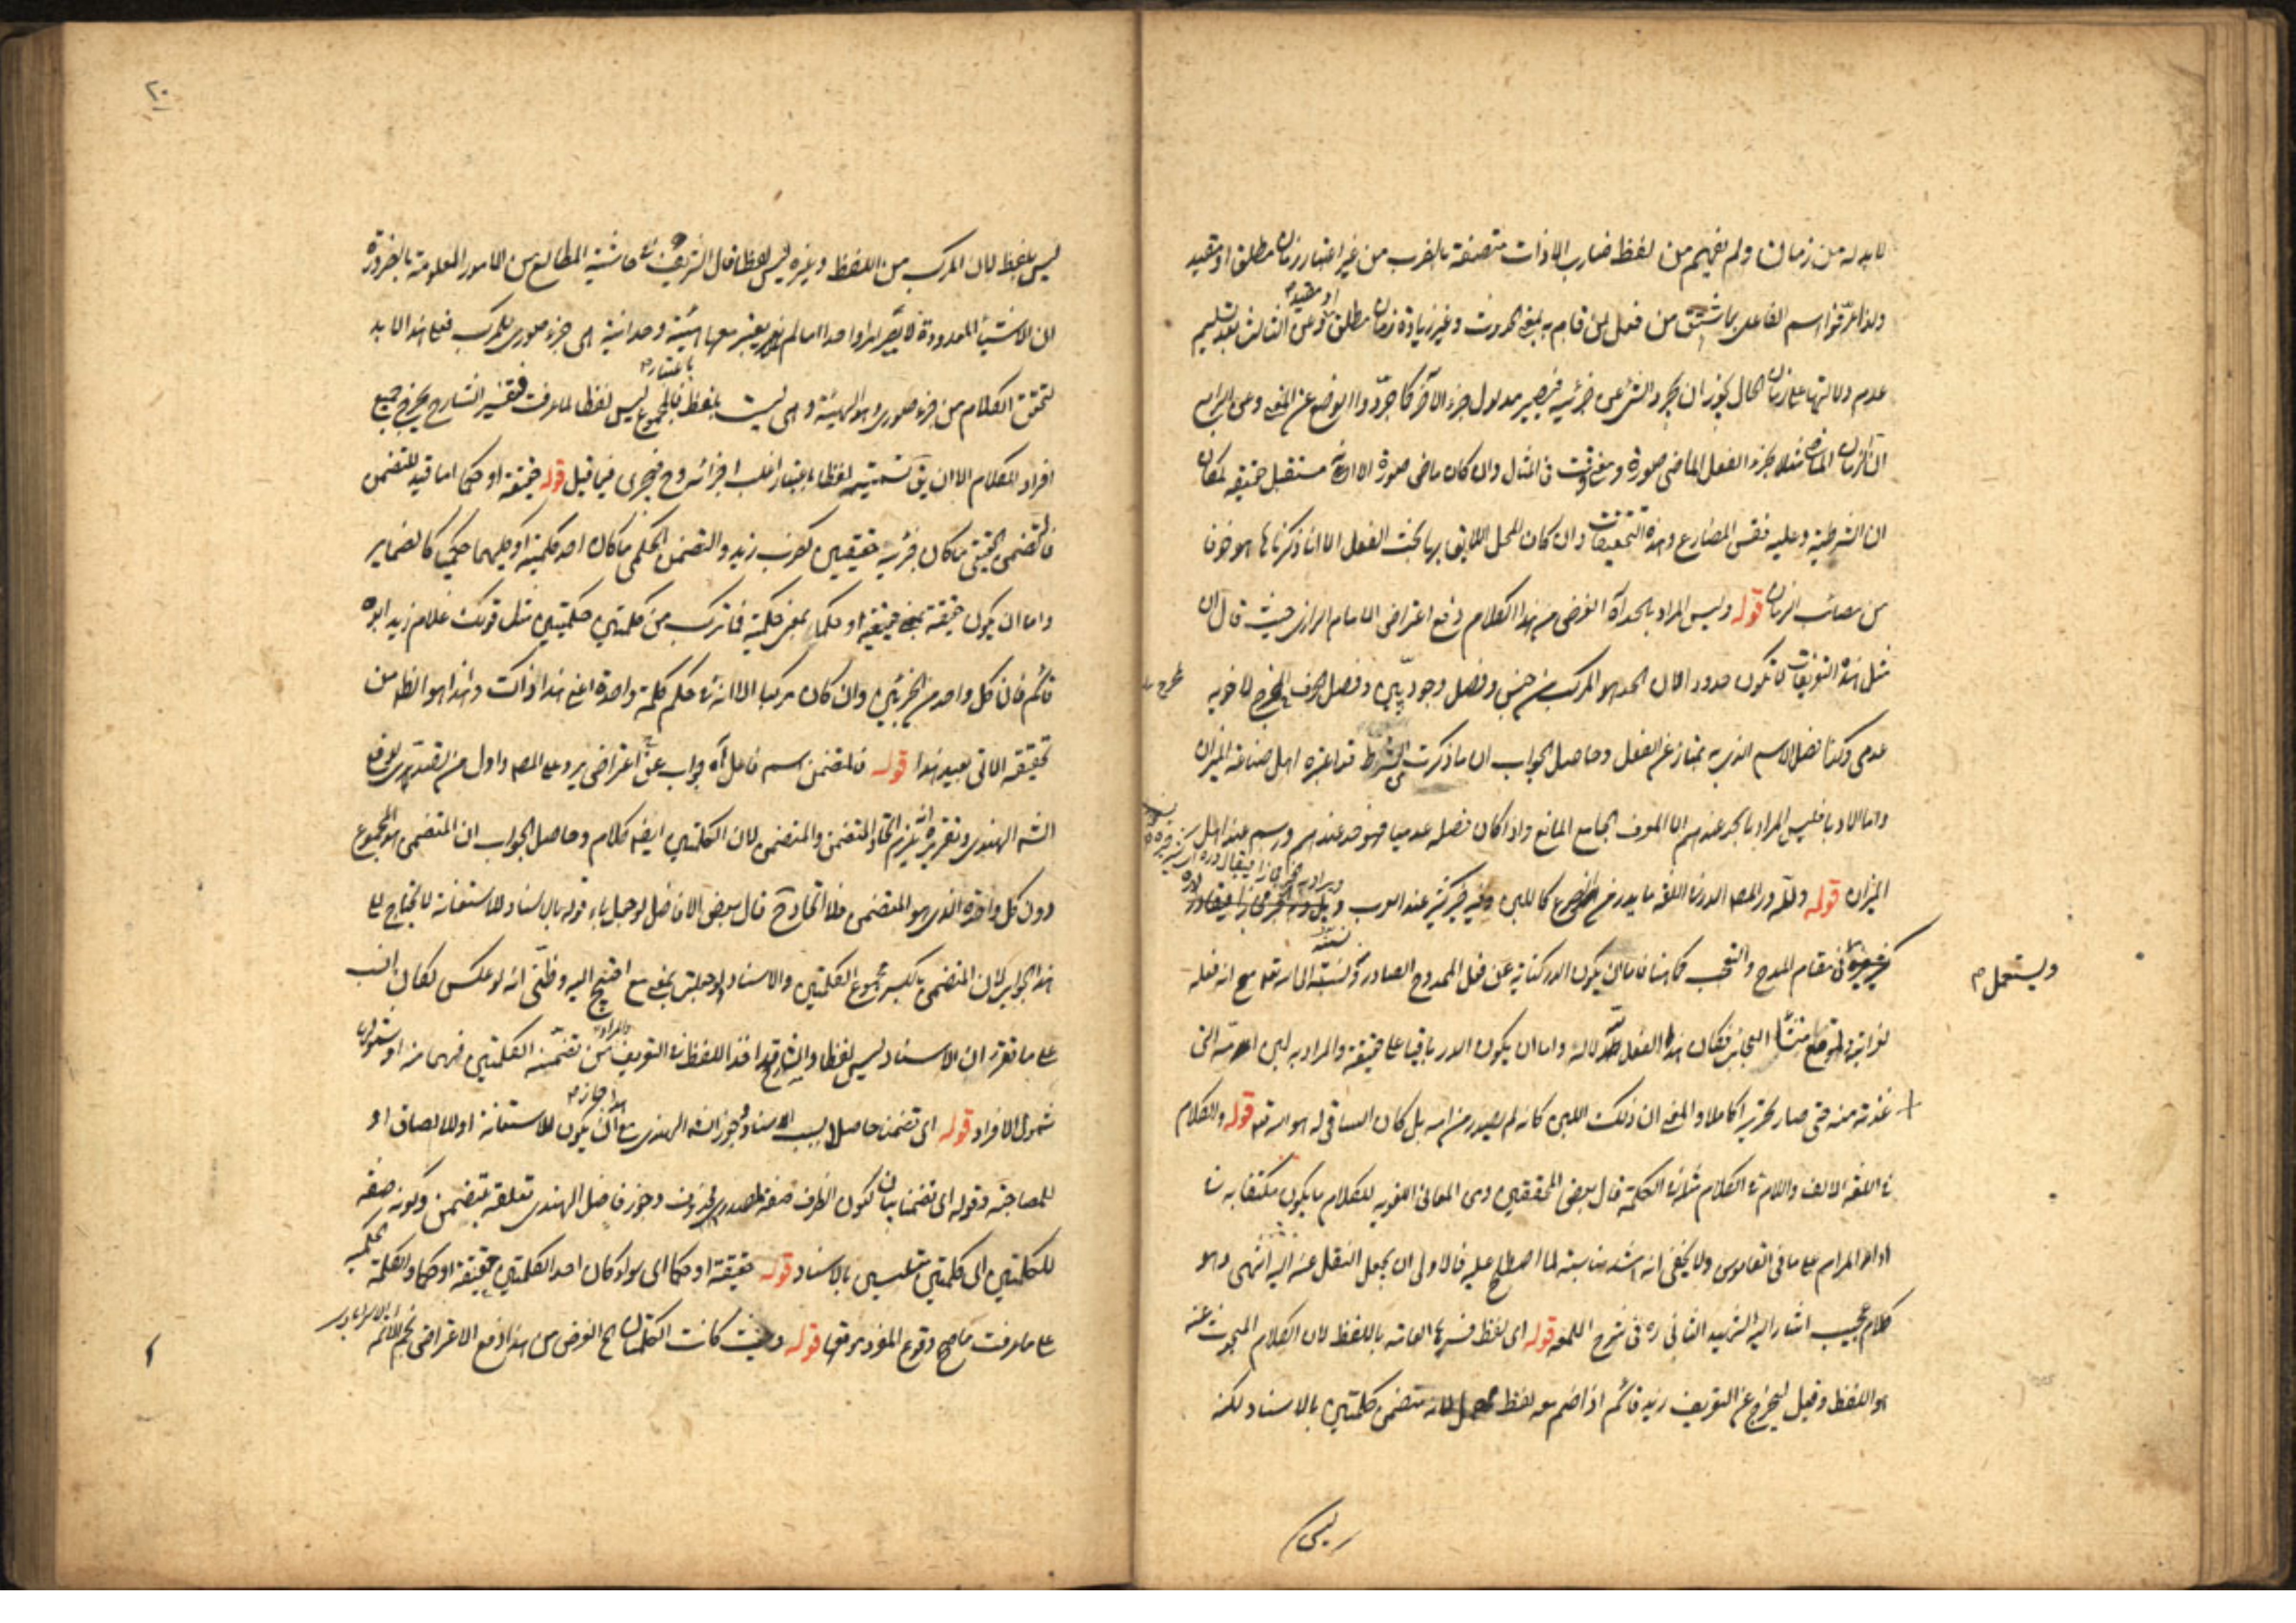 لابد له من زمان ولم يفهم من لفظ ضارب الا ذات متصفة بالضرب من غير اعتبار زمان مطلق او مقيد
ولذا عرّفوا اسم الفاعل بما اشتق من فعل لمن قام به بمعنى الحدوث وغير زيادة زمان مطلق او مقيد وعن الثالث بعد تسليم
عدم دلالتها على زمان الحال يجوز ان يجرد الشئ عن جزئيه فيصير مدلول جزء الآخر كما جرّدوا الوضع عن المعنى وعن الرابع
ان الزمان الماضى مثلا جزء الفعل الماضى صورة ومعنى وثت فى المثال وان كان ماضى صورة الا انه مستقبل حقيقة لمكان
ان الشرطية وعليه فقس المضارع وهذه التحقيقات وان كان المحل اللايق بها بحث الفعل الا انا ذكرناها هنا خوفا
من مصائب الزمان قوله وليس المراد بالحد آه الغرض من هذا الكلام دفع اعتراض الامام الرازى حيث قال ان
مثل هذه التعريفات لا تكون حدودا لان الحد هو المركب من جنس وفصل وجوديين وفصل الحرف المخرج لاخويه
عدمى وكذا فصل الاسم الذى به يمتاز عن الفعل وحاصل الجواب ان ما ذكرت من الشرط قد اعتبره اهل صناعة الميزان
واما الادباء فليس المراد بالحد عندهم الا المعرف الجامع المانع واذا كان فصله عدميا فهو حد عندهم ورسم عند اهل
الميزان قوله ولله در المصـ الدر فى اللغة ما يدر من الضرع كاللبن وفيه خير كثير عند العرب
ويستعمل
فى مقام المدح والتعجب فها هنا فاما ان يكون الدر كناية عن فعل الممدوح الصادر عنه ونسبته الى الله تعالى مع انه فعله
منشأ العجائب فكان هذا الفعل كماله واما ان يكون الدر باقيا على حقيقته والمراد به لبن امه التى
غذته منه حتى صار نحريرا كاملا والمعنى ان ذلك اللبن كانه لم يصدر من امه بل كان الساقى له هو الله تعـ قوله والكلام
فى اللغة الالف واللام فى الكلام مثله فى الكلمة قال بعض المحققين ومن المعانى اللغوية للكلام ما يكون مكتفيا به فى
اداء المرام على ما فى القاموس ولا يخفى انه اشد مناسبة لما اصطلح عليه فالاولى ان يجعل النقل عنه اليه انتهى وهو
كلام عجيب اشار اليه الشهيد الثانى ره فى شرح اللمعة قوله اى لفظ فسر ما العامة باللفظ لان الكلام المبحوث عنه
هو اللفظ وقيل ليخرج عن التعريف زيد قائم اذا ضم معه لفظ مهمل لانه متضمن كلمتين بالاسناد لكنه
ليس
٢٠
ليس بلفظ لان المركب من اللفظ وغيره ليس لفظا قال الشريف فى حاشية المطالع من الامور المعلومة بالضرورة
ان الاشياء المعدودة لا يصير امرا واحدا ما لم يعتبر معها هيئة وحدانية هى جزء صورى للمركب فعلى هذا لابد
لتحقق الكلام من جزء صورى وهو الهيئة وهى ليست بلفظ فالمجموع باعتباره ليس لفظا لما عرفت فتفسير الشارح يخرج جميع
افراد الكلام الا ان يقـ تسميته لفظا باعتبار اغلب اجزائه وح فيجرى فيما قيل قوله حقيقة او حكما اما قيد للتضمن
فالتضمن الحقيقى ما كان جزئيه حقيقين كضرب زيد والتضمن الحكمى ما كان احد كلمتيه او كليهما حكميا كالضماير
واما ان يكون حقيقة بمعنى حقيقية او حكما بمعنى حكمية فما تركب من كلمتين حكميتين مثل قولك غلام زيد ابوه
قائم فان كل واحد من الجزئين وان كان مركبا الا انه فى حكم كلمة واحدة اعنى هذا ذاك وهذا هو الظاهر من
تحقيقه الآتى بعيد هذا قوله فالمتضمن اسم فاعل آه جواب عن اعتراض يرد على المصـ واول من تصدى لدفعه
الشـ الهندى وتقريره انه يلزم اتحاد المتضمن والمتضمن لان الكلمتين ايضا كلام وحاصل الجواب ان المتضمن هو المجموع
دون كل واحد الذى هو المتضمن فلا اتحاد ح قال بعض الافاضل لو جعل باء قوله بالاسناد للاستعانة لا يحتاج الى
هذا الجواب لان المتضمن بالكسر مجموع الكلمتين والاسناد ولو جعلت بمعنى مع احتيج اليه وظنّى انه لو عكس لكان انسب
على ما تقرر ان الاسناد ليس لفظا والشارح قد اخذ اللفظ فى التعريف والمراد من تضمنه الكلمتين فهمها منه او شموله
شمول الافراد قوله اى تضمنا حاصلا بسبب الاسناد وجوز الشـ الهندى هنا ان يكون للاستعانة او للالصاق او
للمصاحبة وقوله اى تضمنا بيان لكون الظرف صفة لمصدر محذوف وجوز فاضل الهندى تعلقه بتضمن وكونه صفة
للكلمتين الى كلمتين متلبسين بالاسناد قوله حقيقة او حكما اى سواء كان احد الكلمتين حقيقة او حكما والكلمة الحكمية
على ما عرفت ما صح وقوع المفرد موقعها قوله وحيث كانت الكلمتان الخ الغرض من هذا دفع الاعتراض نجم الائمة